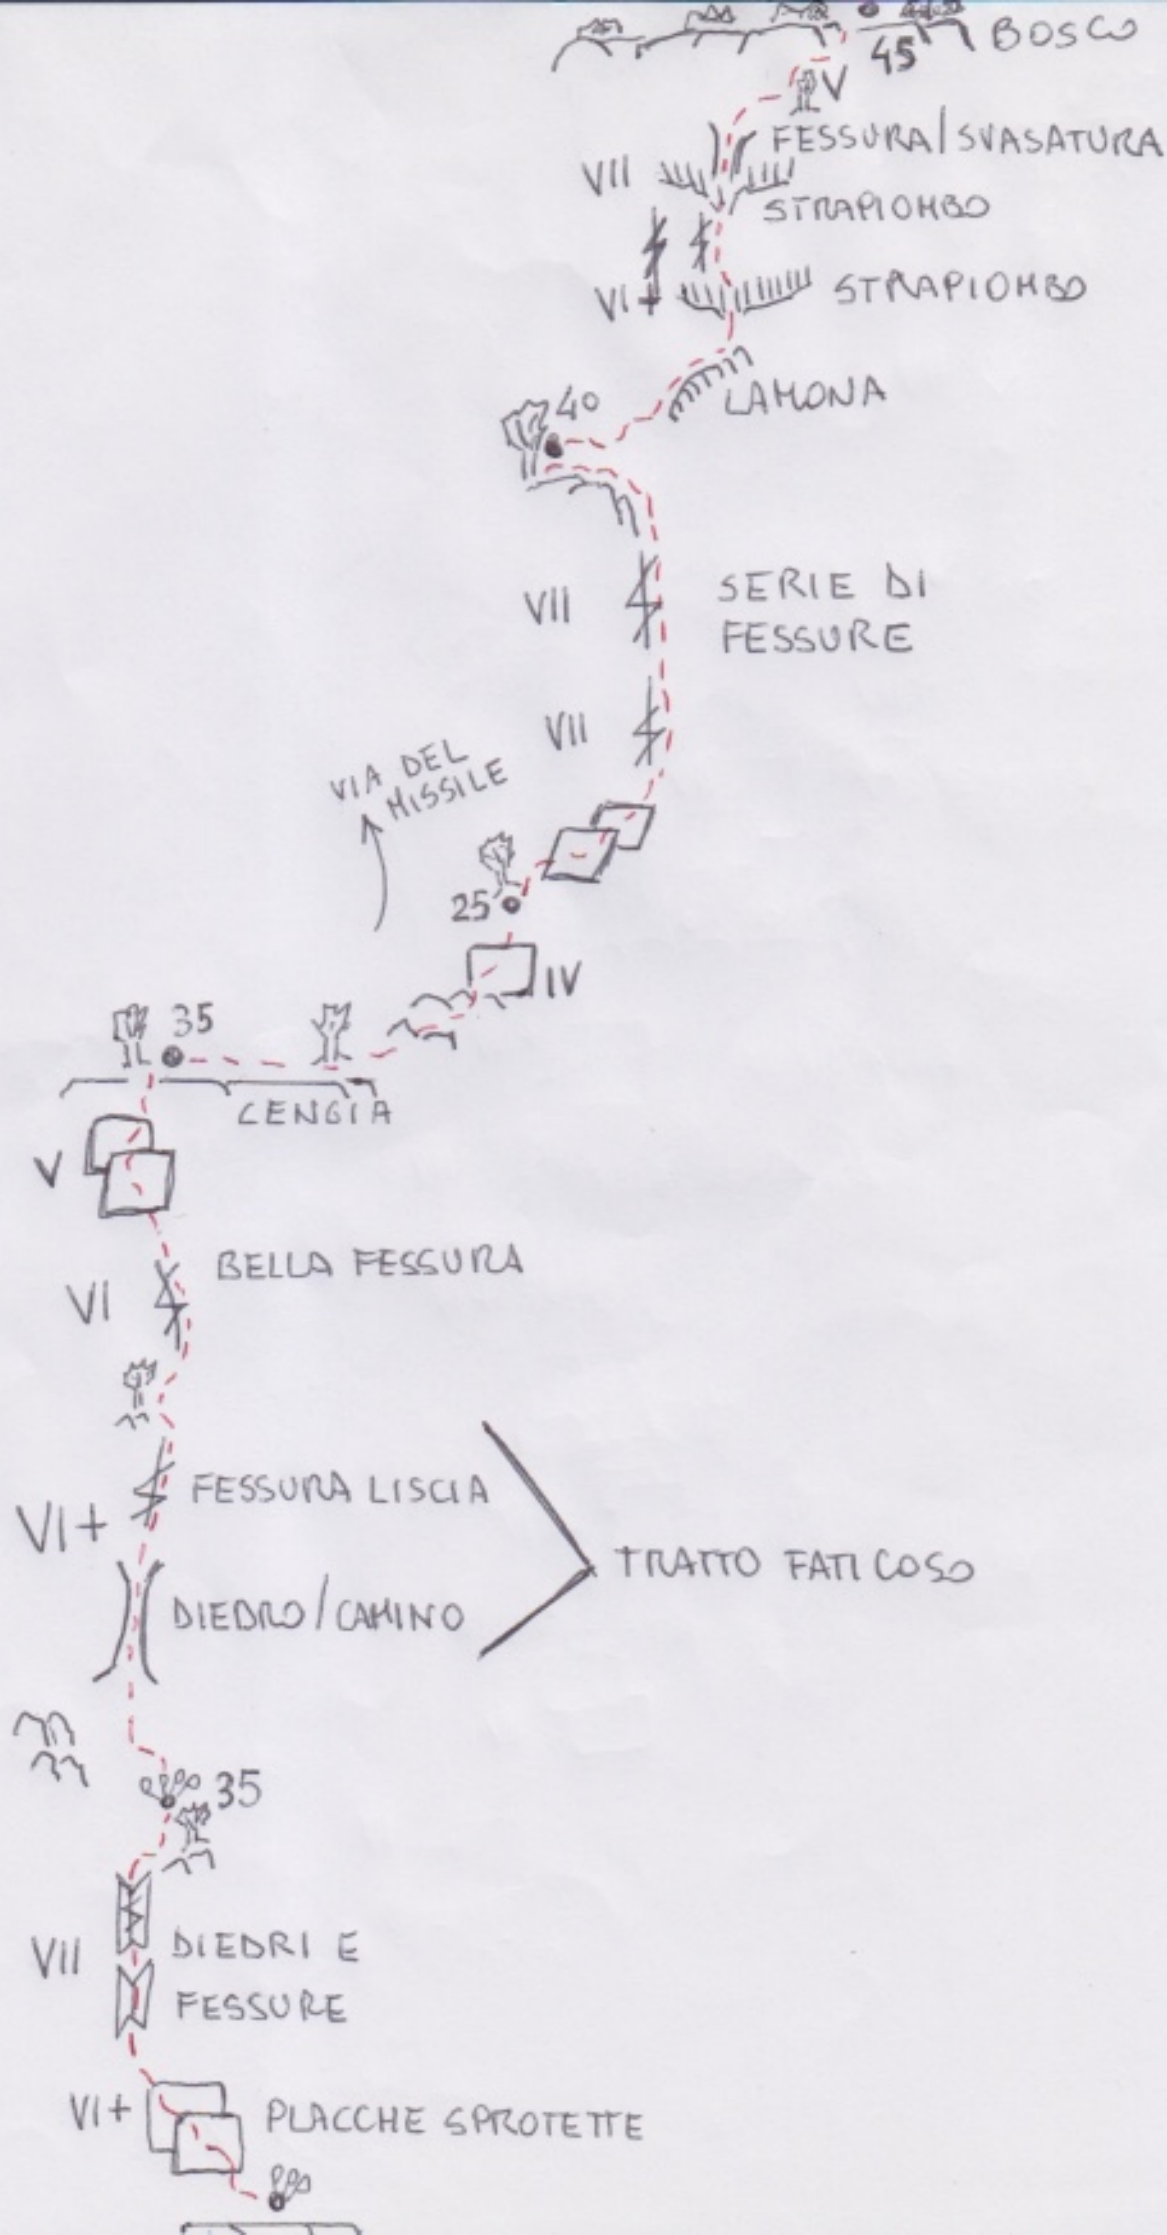 BOSCO
45
V
FESSURA/SVASATURA
VII
STRAPIOMBO
VI+
STRAPIOMBO
LAMONA
40
VII
SERIE DI
FESSURE
VII
VIA DEL
MISSILE
25
IV
35
CENGIA
V
BELLA FESSURA
VI
FESSURA LISCIA
VI+
TRATTO FATICOSO
DIEDRO/CAMINO
35
VII
DIEDRI E
FESSURE
VI+
PLACCHE SPROTETTE